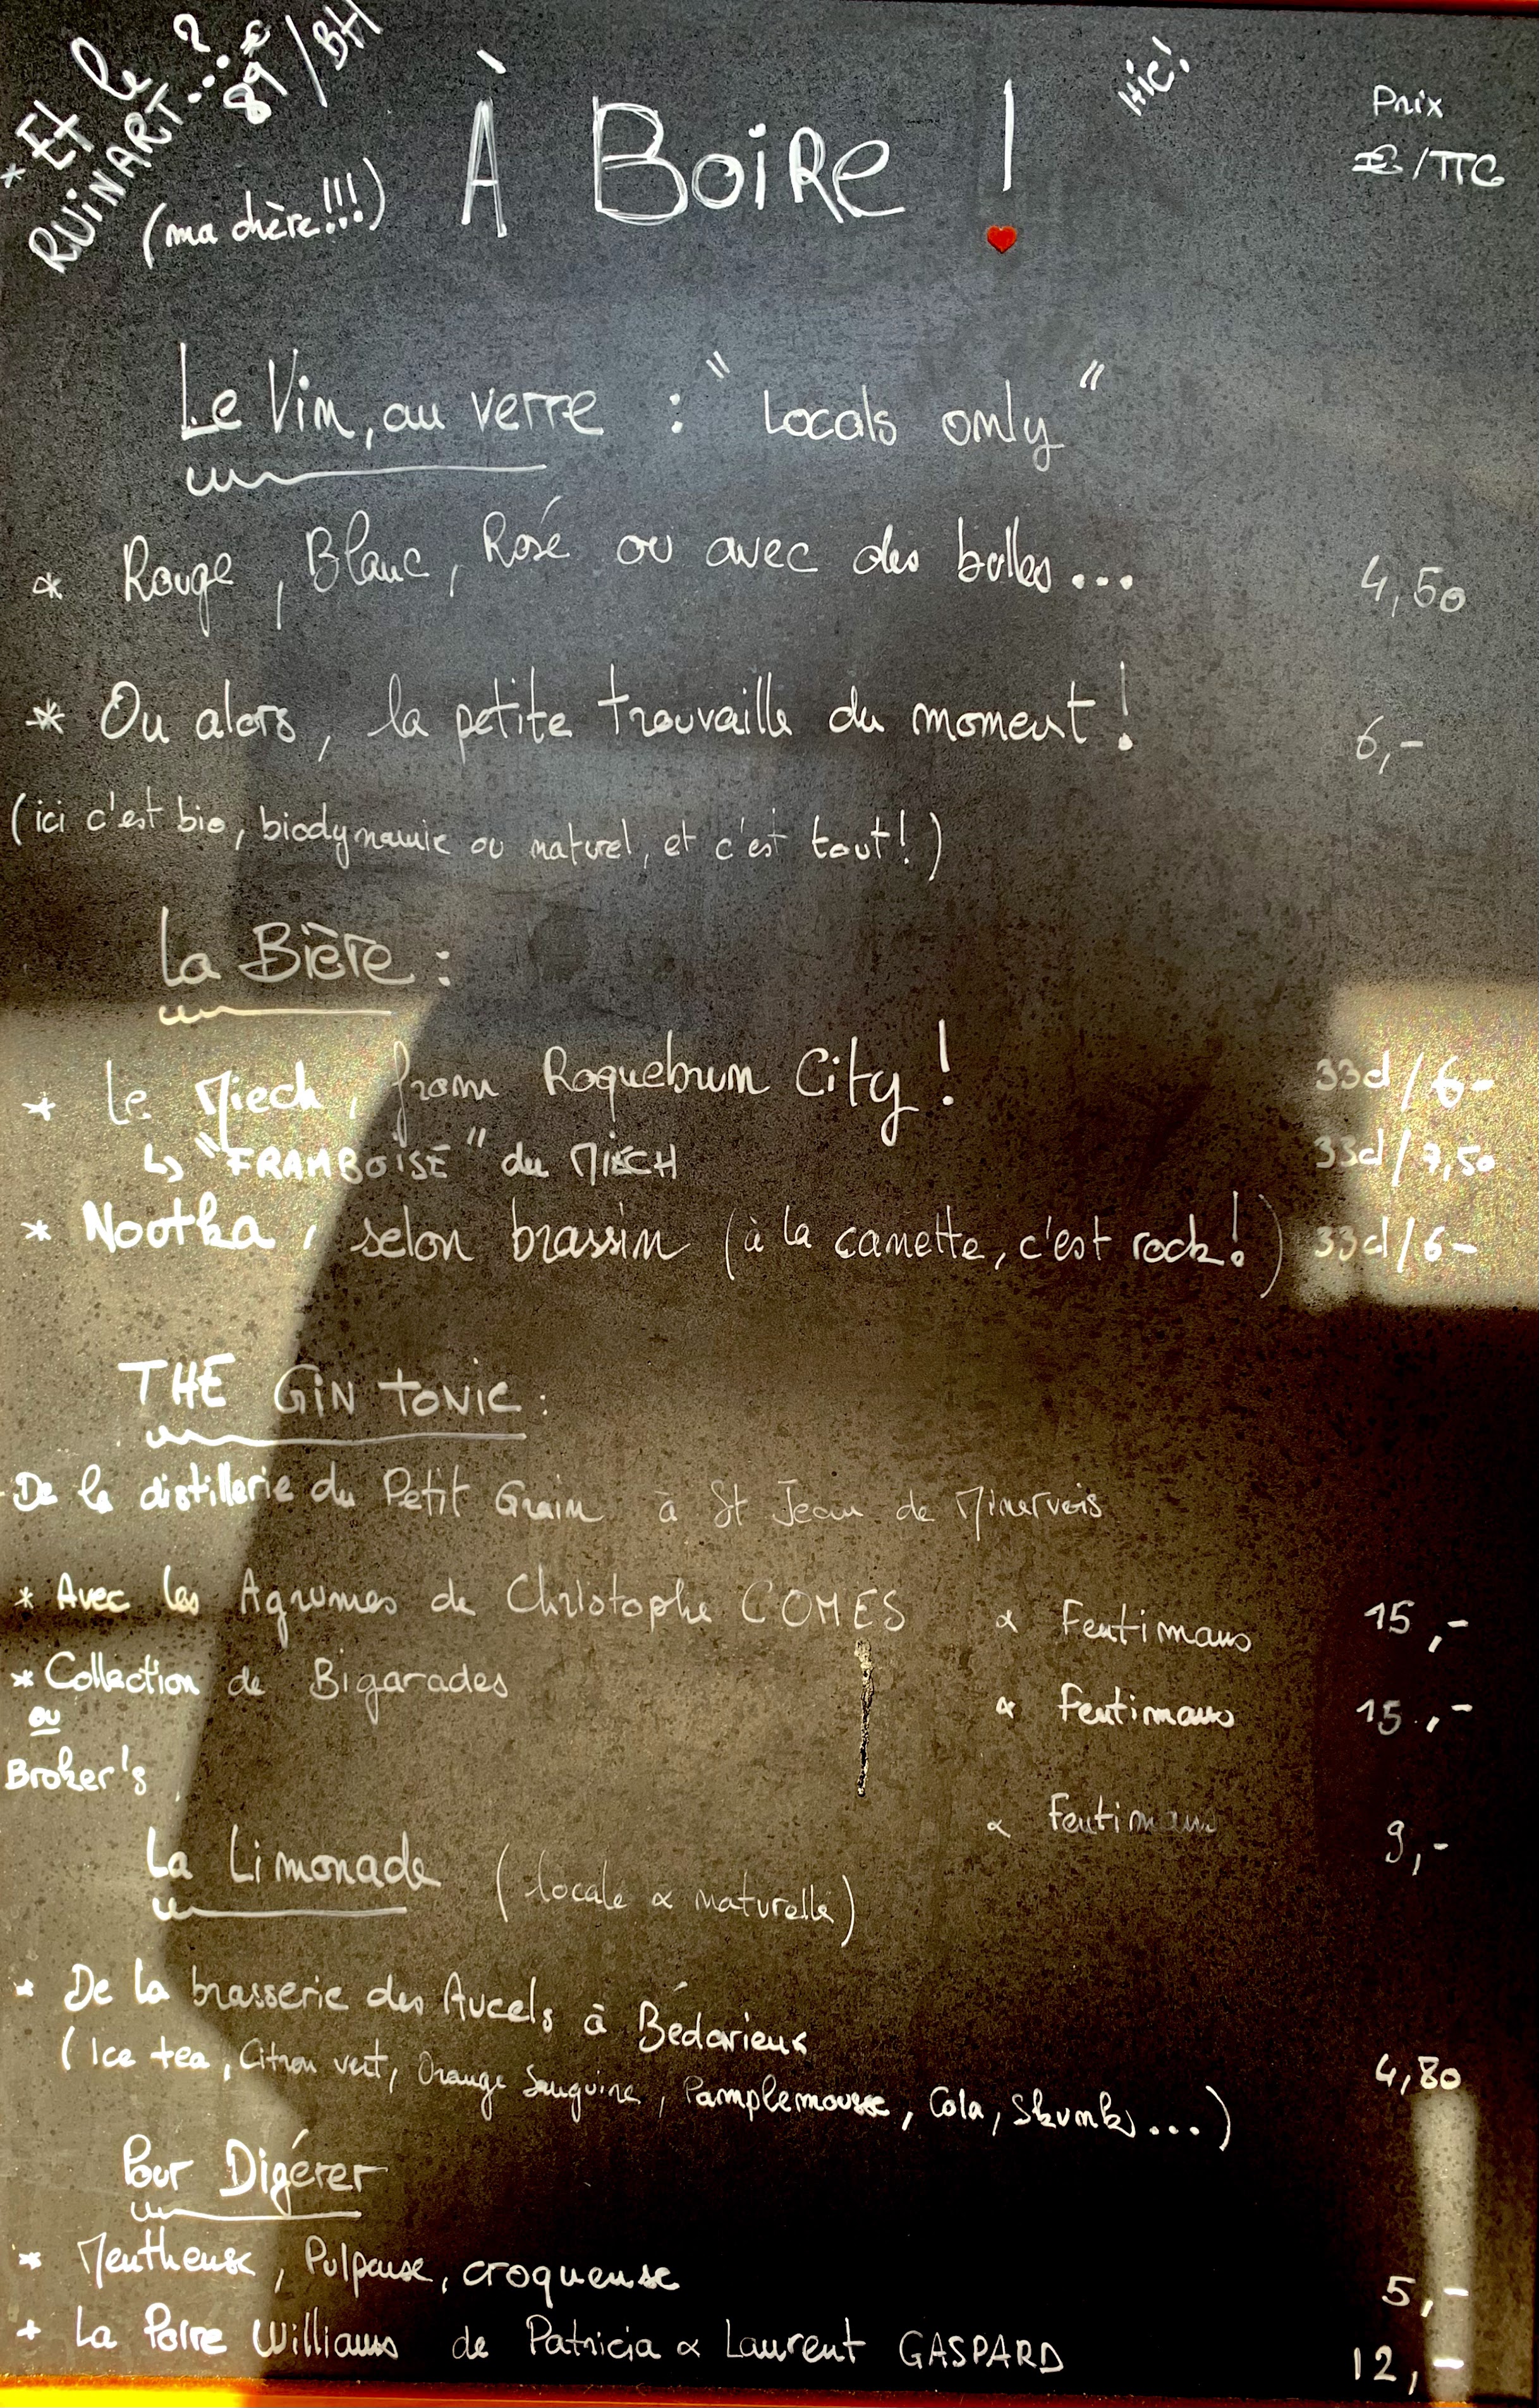 * Et le
RUINART...?
89€/BH
(ma chère!!!)
À BOIRE !
HIC!
Prix
€/TTC
Le Vin, au verre : "Locals only"
* Rouge, Blanc, Rosé ou avec des bulles... 4,50
* Ou alors, la petite trouvaille du moment! 6,-
(ici c'est bio, biodynamie ou naturel, et c'est tout!)
La Bière :
* Le Miech, from Roquebrun City! 33cl/6-
↳ "FRAMBOISE" du MIECH 33cl/7,50
* Nootka, selon brassin (à la canette, c'est rock!) 33cl/6-
THE GIN TONIC :
De la distillerie du Petit Grain à St Jean de Minervois
* Avec les Agrumes de Christophe COMES & Fentimans 15,-
* Collection de Bigarades & Fentimans 15,-
ou
Broker's & Fentimans 9,-
La Limonade (locale & naturelle)
* De la brasserie des Aucels à Bédarieux
(Ice tea, Citron vert, Orange Sanguine, Pamplemousse, Cola, Skunk...) 4,80
Pour Digérer
* Mentheuse, Pulpeuse, croqueuse 5,-
+ La Poire Williams de Patricia & Laurent GASPARD 12,-